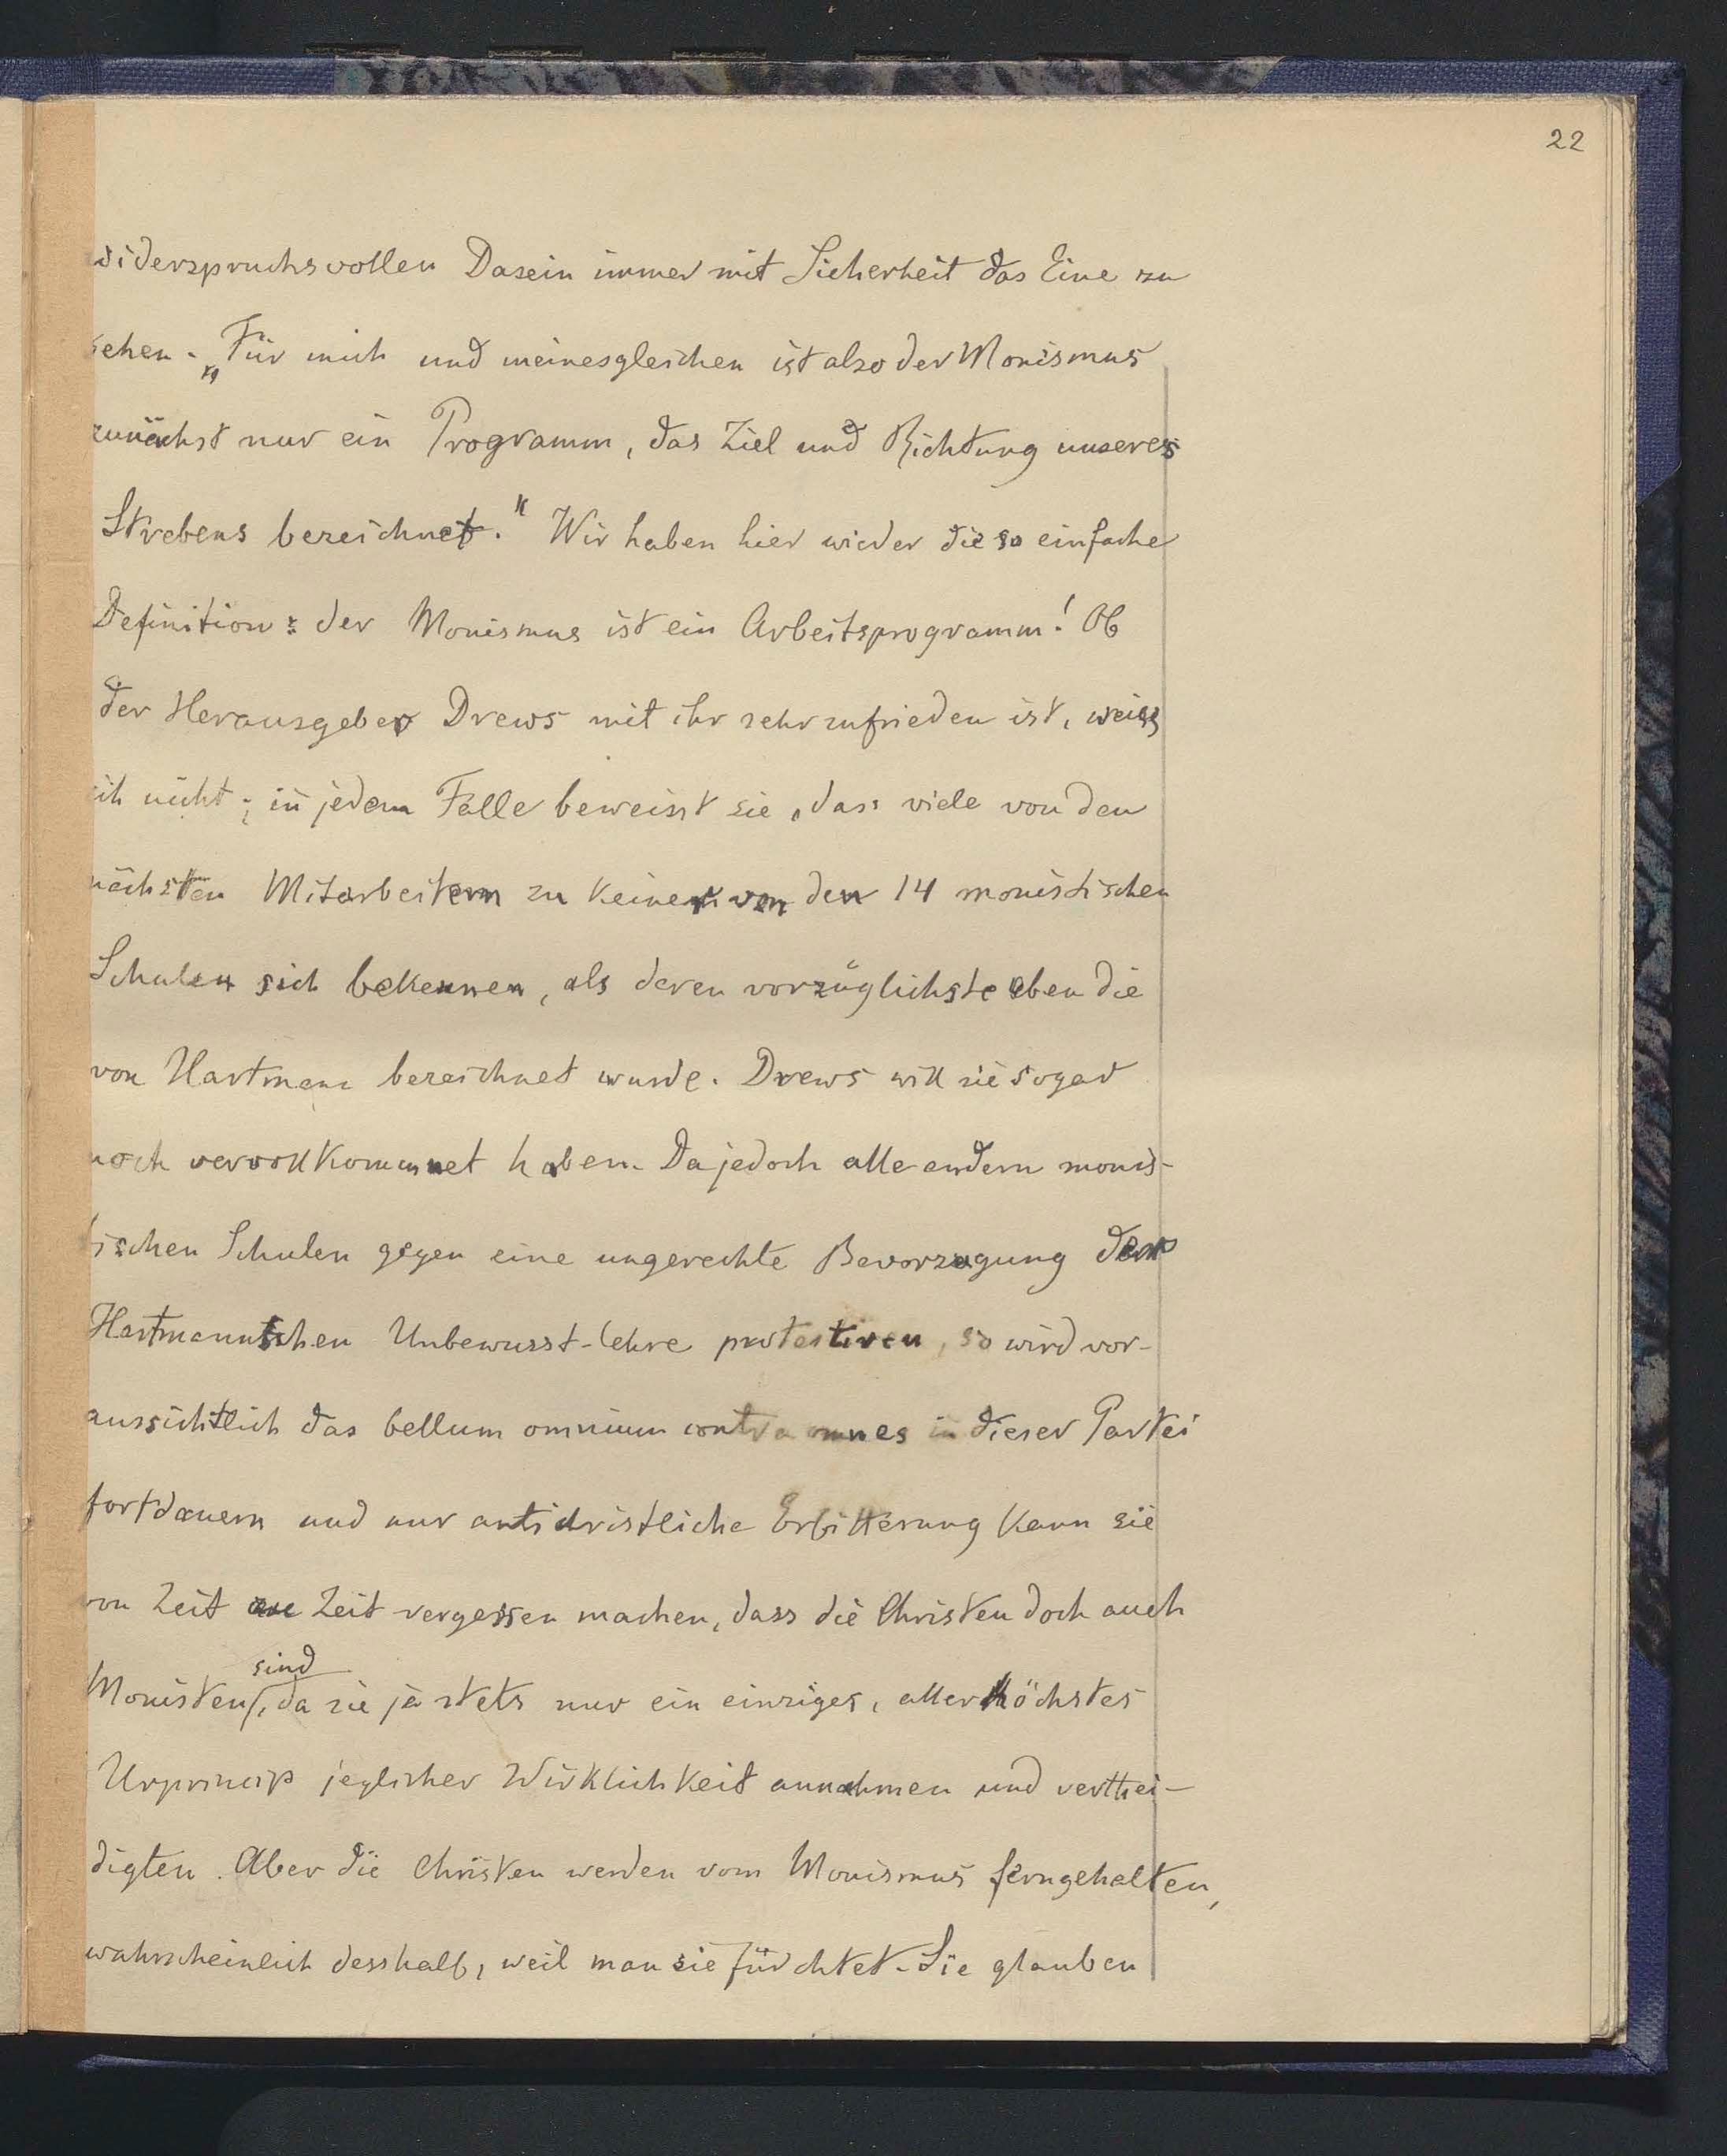 22
widerspruchsvollen Dasein immer mit Sicherheit das Eine zu
sehen. „Für mich und meinesgleichen ist also der Monismus
zunächst nur ein Programm, das Ziel und Richtung unseres
Strebens bezeichnet." Wir haben hier wieder die so einfache
Definition: der Monismus ist ein Arbeitsprogramm! Ob
der Herausgeber Drews mit ihr sehr zufrieden ist, weiss
ich nicht; in jedem Falle beweisst sie, dass viele von den
nächsten Mitarbeitern zu keiner von den 14 monistischen
Schulen sich bekennen, als deren vorzüglichste eben die
von Hartmann bezeichnet wurde. Drews will sie sogar
noch vervollkommnet haben. Da jedoch alle andern monis-
tischen Schulen gegen eine ungerechte Bevorzugung der
Hartmannschen Unbewusst-lehre protestiren, so wird vor-
aussichtlich das bellum omnium contra omnes in dieser Partei
fortdauern und nur antichristliche Erbitterung kann sie
von Zeit zu Zeit vergessen machen, dass die Christen doch auch
Monisten sind, da sie ja stets nur ein einziges, allerhöchstes
Urprincip jeglicher Wirklichkeit annahmen und verthei-
digten. Aber die Christen werden vom Monismus ferngehalten,
wahrscheinlich desshalb, weil man sie fürchtet. Sie glauben